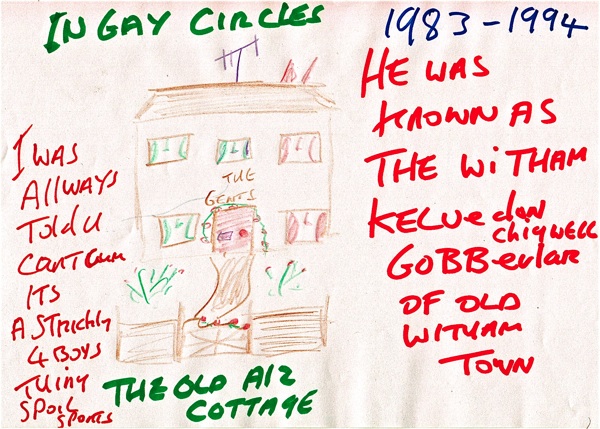 IN GAY CIRCLES
1983-1994
HE WAS
KNOWN AS
THE WITHAM
KELVedon
CHigWELL
GOBBerlar
OF OLD
WITHAM
TOWN
I WAS
AllWAYS
Told U
CANT CUM
ITS
A STRICHLY
4 BOYS
THINY
SPOIL
SPORTS
THE
GENTS
THE OLD A12
COTTAGE